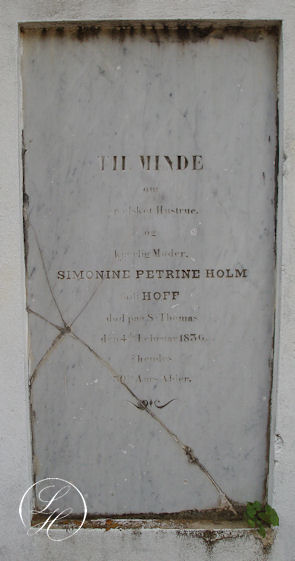 TIL MINDE
om
elsket Hustrue,
og
kjærlig Moder,
SIMONINE PETRINE HOLM
HOFF
død paa St Thomas
den 4de Februar 1836
i hendes
Aars Alder.
LH